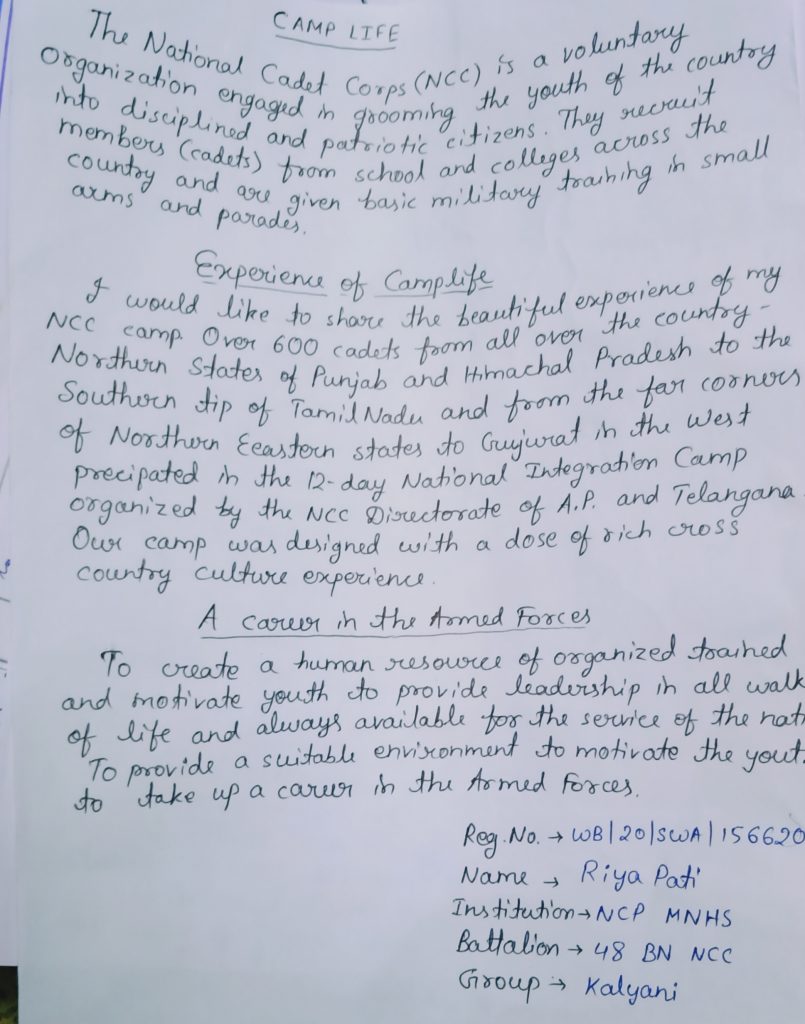 CAMP LIFE
The National Cadet Corps (NCC) is a voluntary
Organization engaged in grooming the youth of the country
into disciplined and patriotic citizens. They recruit
members (cadets) from school and colleges across the
country and are given basic military training in small
arms and parades.
Experience of Camplife
I would like to share the beautiful experience of my
NCC camp. Over 600 cadets from all over the country -
Northern States of Punjab and Himachal Pradesh to the
Southern tip of Tamil Nadu and from the far corners
of Northern Eeastern states to Gujurat in the West
precipated in the 12-day National Integration Camp
organized by the NCC Directorate of A.P. and Telangana
Our camp was designed with a dose of rich cross
country culture experience.
A career in the Armed Forces
To create a human resource of organized trained
and motivate youth to provide leadership in all walk
of life and always available for the service of the nat
To provide a suitable environment to motivate the yout
to take up a career in the Armed Forces.
Reg. No. → WB/20/SWA/156620
Name → Riya Pati
Institution → NCP MNHS
Battalion → 48 BN NCC
Group → Kalyani